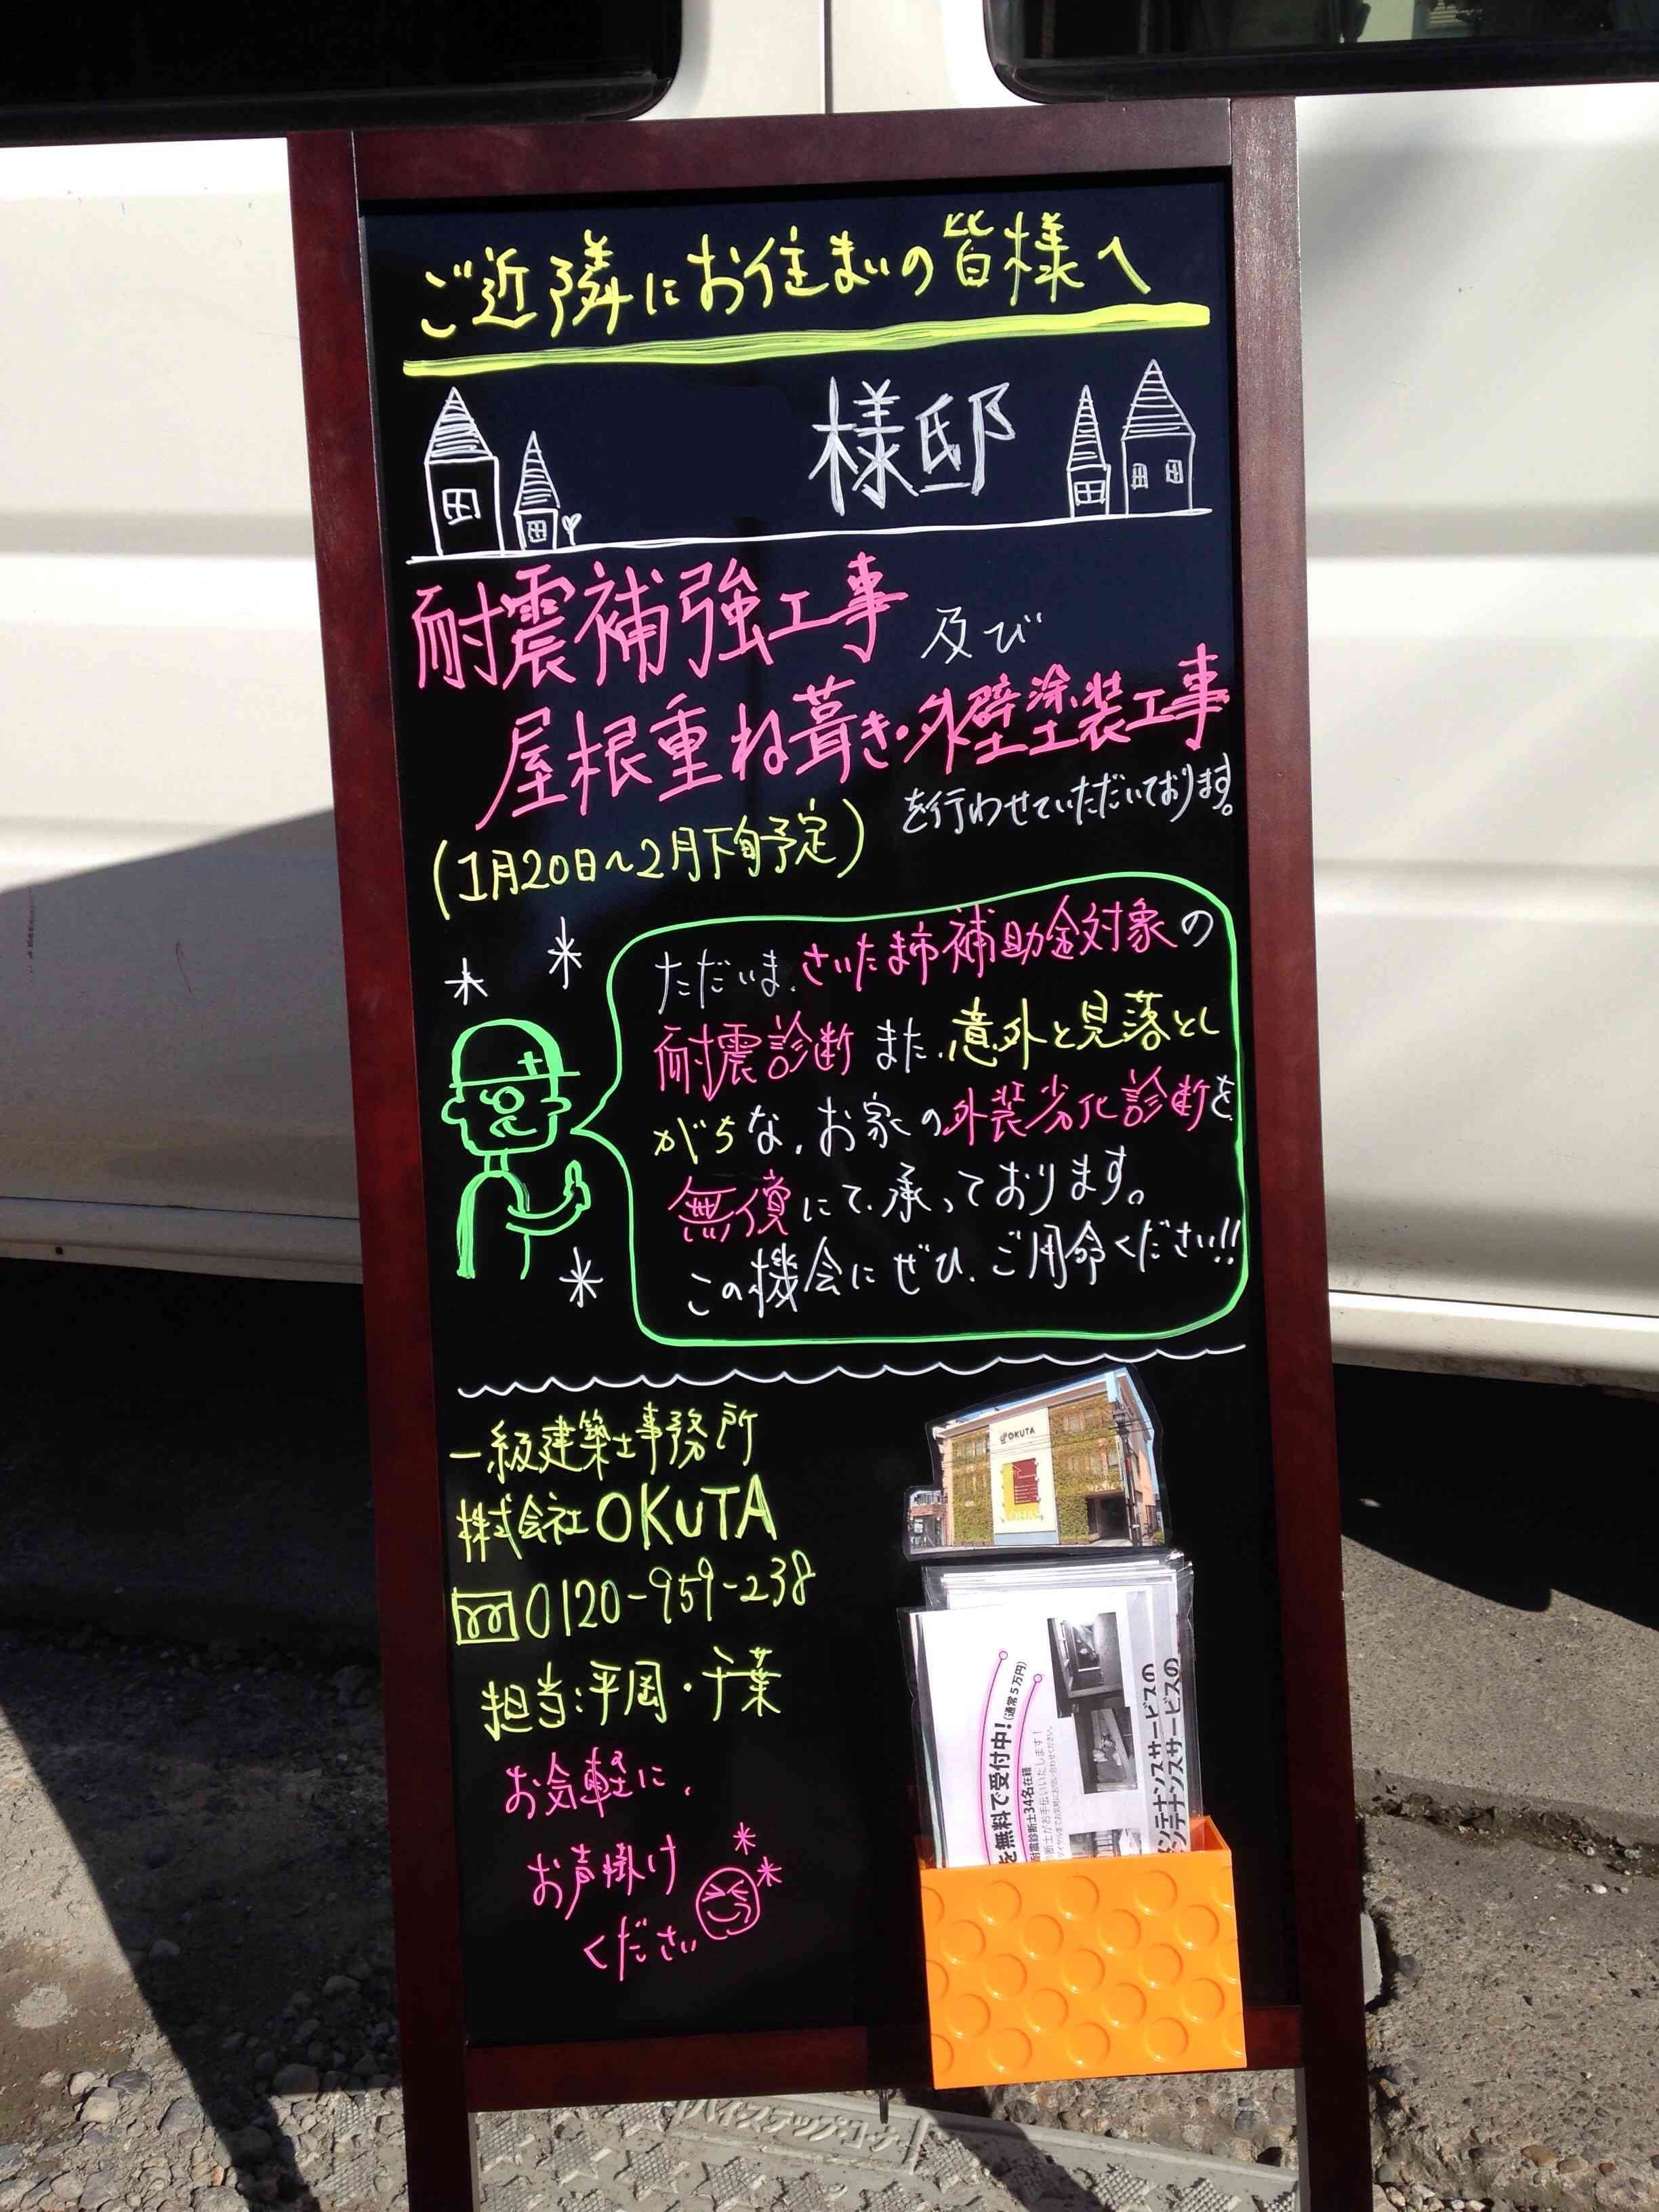 ご近隣にお住まいの皆様へ
様邸
耐震補強工事 及び
屋根重ね葺き・外壁塗装工事
を行わせていただいております。
(1月20日~2月下旬予定)
ただいま、さいたま市補助金対象の
耐震診断 また、意外と見落とし
がちな、お家の外装劣化診断を
無償にて、承っております。
この機会にぜひ、ご用命ください!!
一級建築士事務所
株式会社OKUTA
0120-959-238
担当:平岡・千葉
お気軽に、
お声掛け
ください
OKUTA
を無料で受付中!(通常5万円)
耐震診断士34名在籍
断士がお手伝いいたします!
ンテナンスサービスの
ンテナンスサービスの
ハイステップコーナ